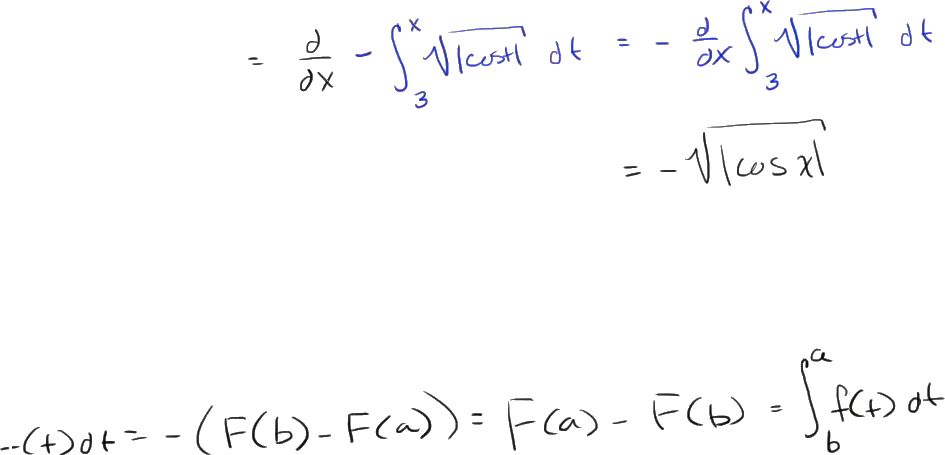 = d/dx - ∫₃ˣ √|cos t| dt = - d/dx ∫₃ˣ √|cos t| dt
= - √|cos x|
(t) dt = - (F(b) - F(a)) = F(a) - F(b) = ∫_b^a f(t) dt